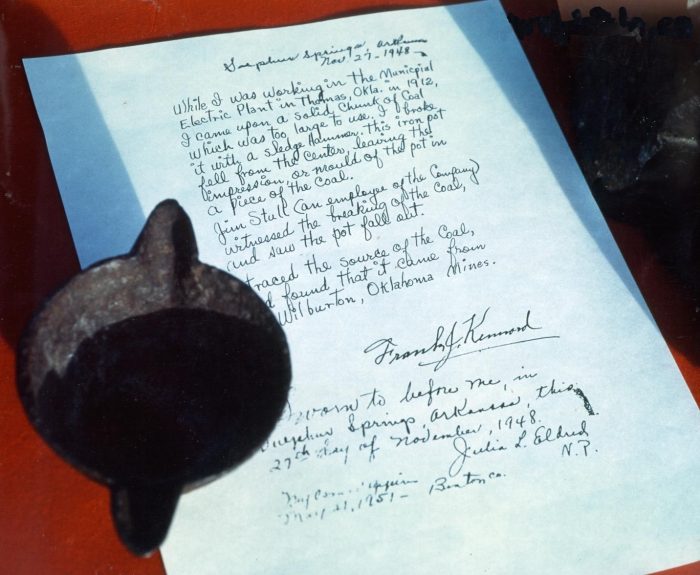 Sulphur Springs, Arkansas
Nov. 27, 1948
While I was working in the Municipial
Electric Plant in Thomas, Okla. in 1912,
I came upon a solid chunk of Coal
which was too large to use. I broke
it with a sledge hammer. This iron pot
fell from the center, leaving the
impression, or mould of the pot in
a piece of the coal.
Jim Stull (an employee of the Company)
witnessed the breaking of the coal,
and saw the pot fall out.
traced the source of the Coal,
d found that it came from
Wilburton, Oklahoma Mines.
Frank J. Kennard
Sworn to before me, in
Sulphur Springs, Arkansas, this
27th day of November, 1948.
Julia L. Eldred
N.P.
My Com. expires
May 21, 1951 – Benton Co.